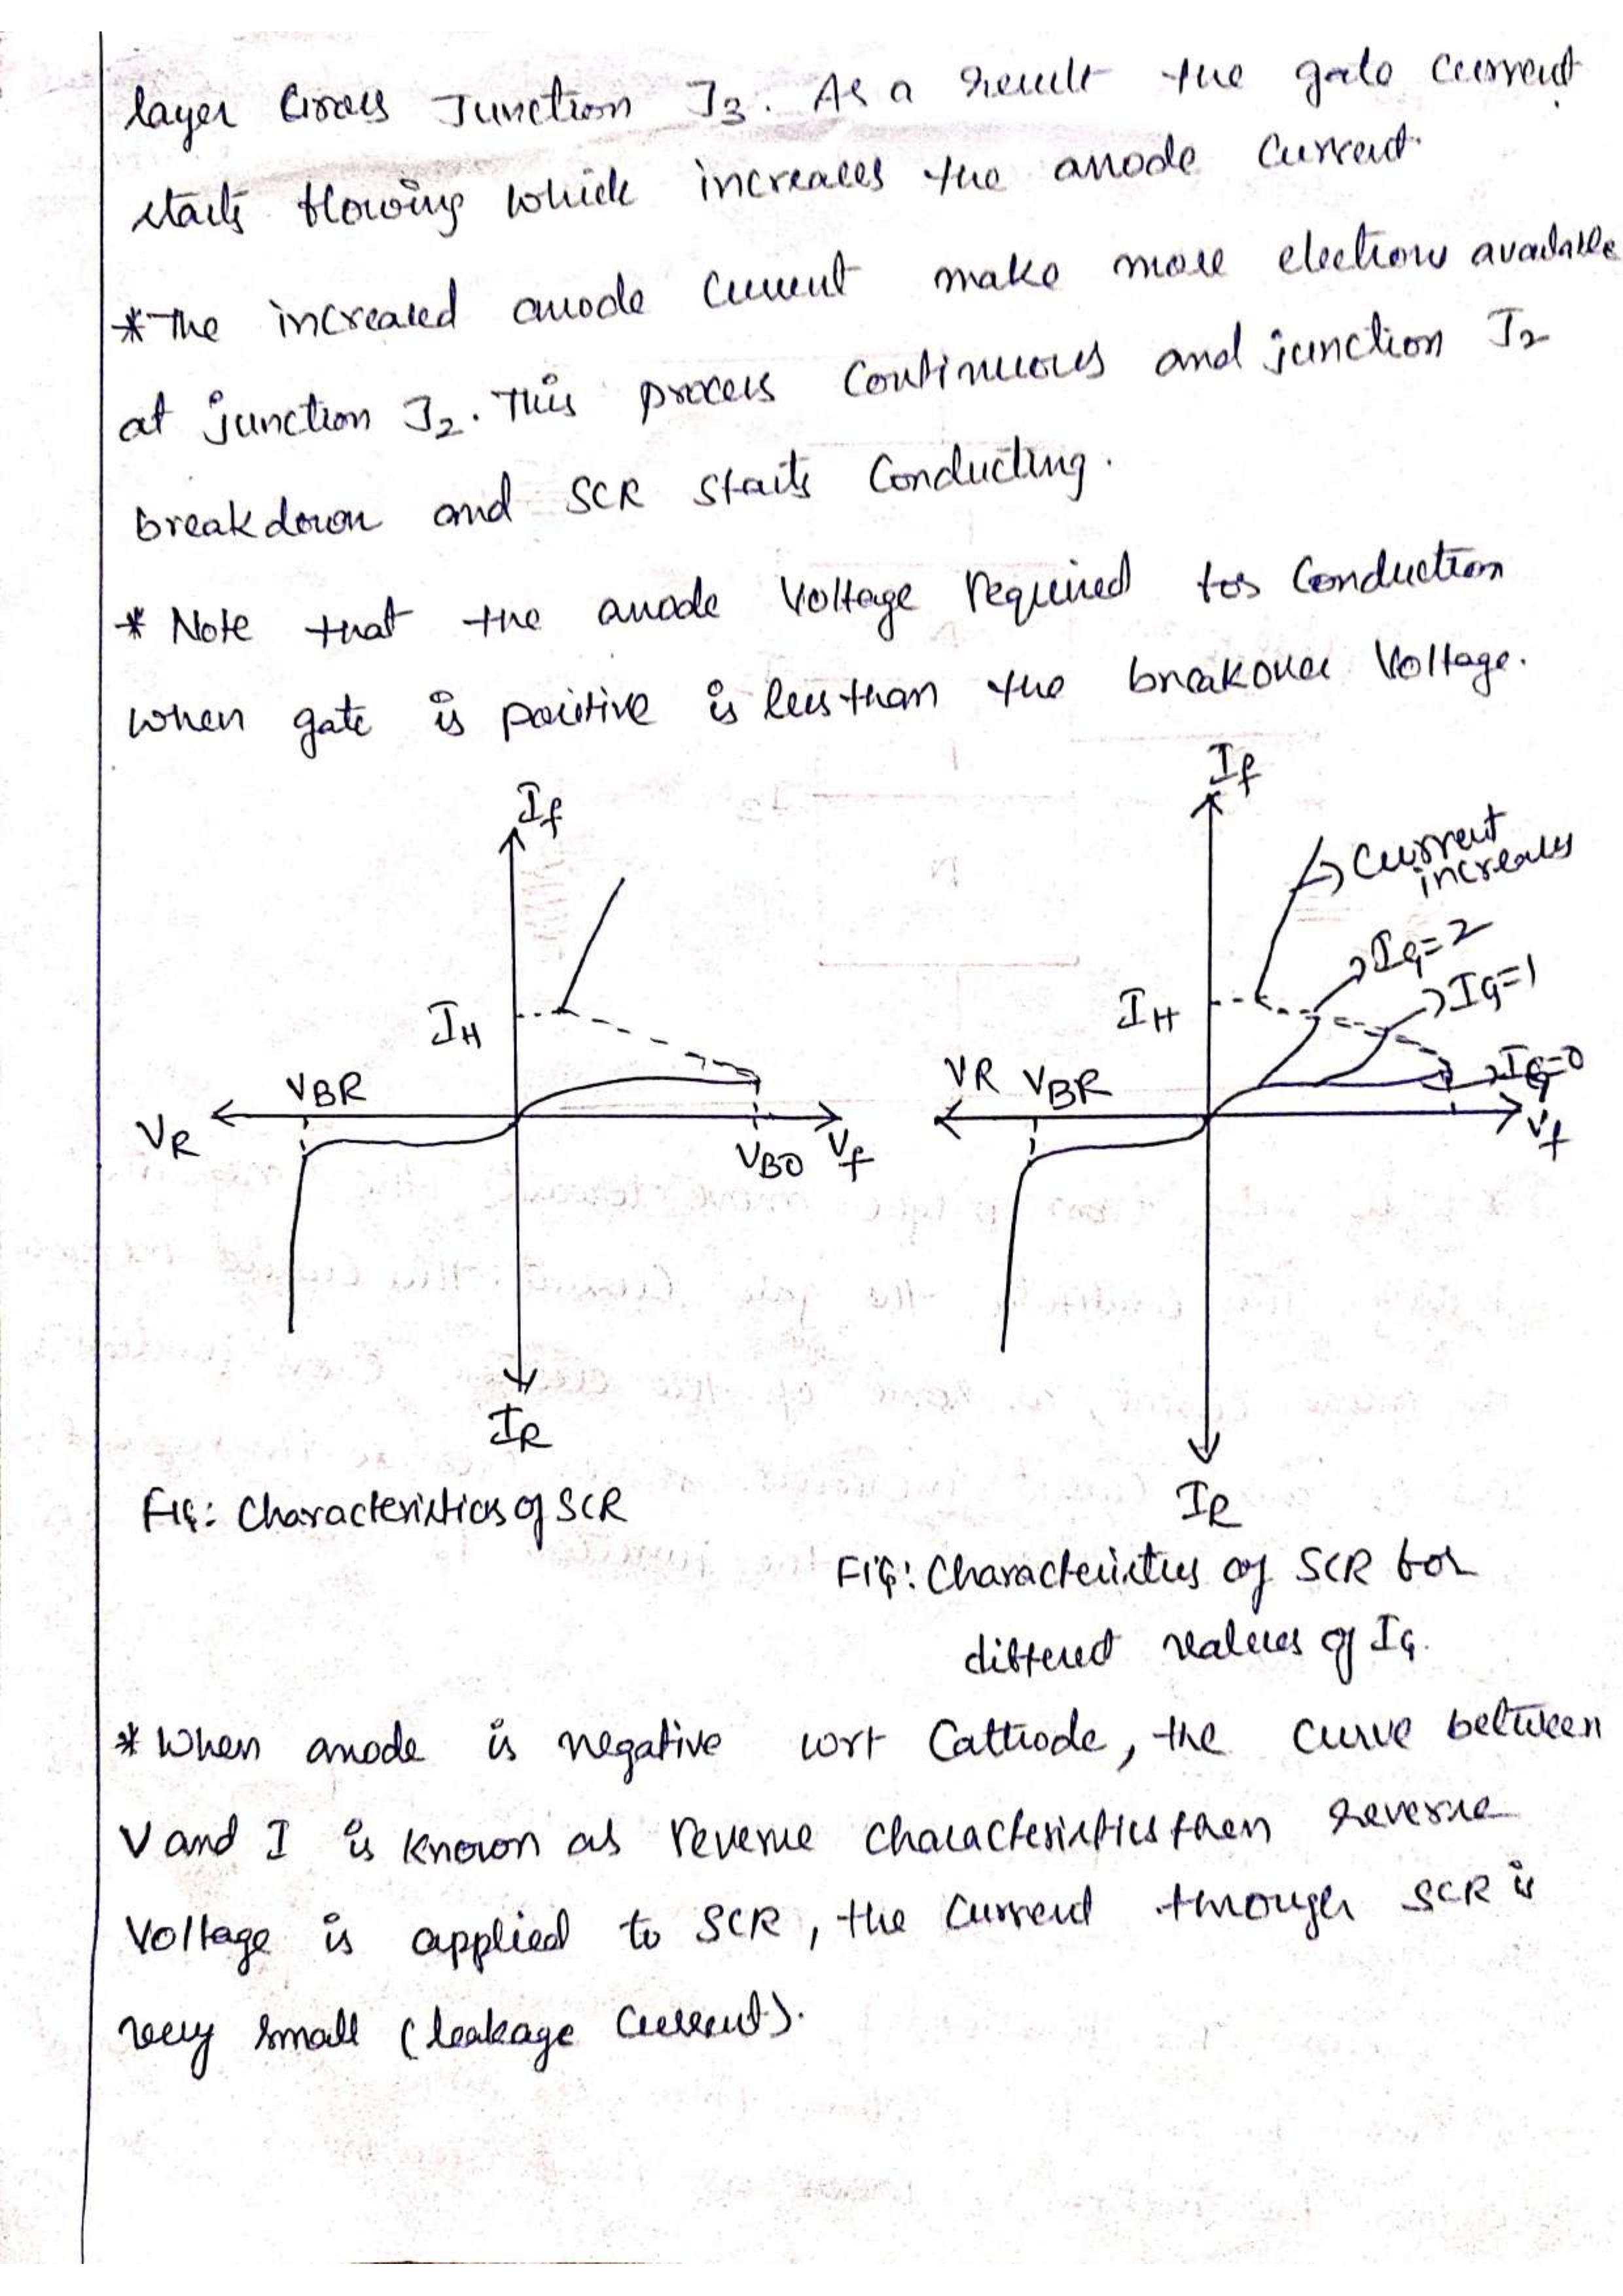 layer Cross Junction J3. As a result the gate current
starts flowing which increases the anode current.
*The increased anode current make more electrons available
at junction J2. This process Continuous and junction J2
breakdown and SCR starts Conducting.
* Note that the anode Voltage required for Conduction
when gate is positive is less than the breakover Voltage.
If
IH
VBR
VR
VBO Vf
IR
If
Current
increases
IG=2
IG=1
IH
VR VBR
IG=0
Vf
IR
FIG: Characteristics of SCR
FIG: Characteristics of SCR for
different values of IG.
* When anode is negative wrt Cathode, the curve between
V and I is known as reverse characteristics then reverse
Voltage is applied to SCR, the current through SCR is
very small (leakage current).